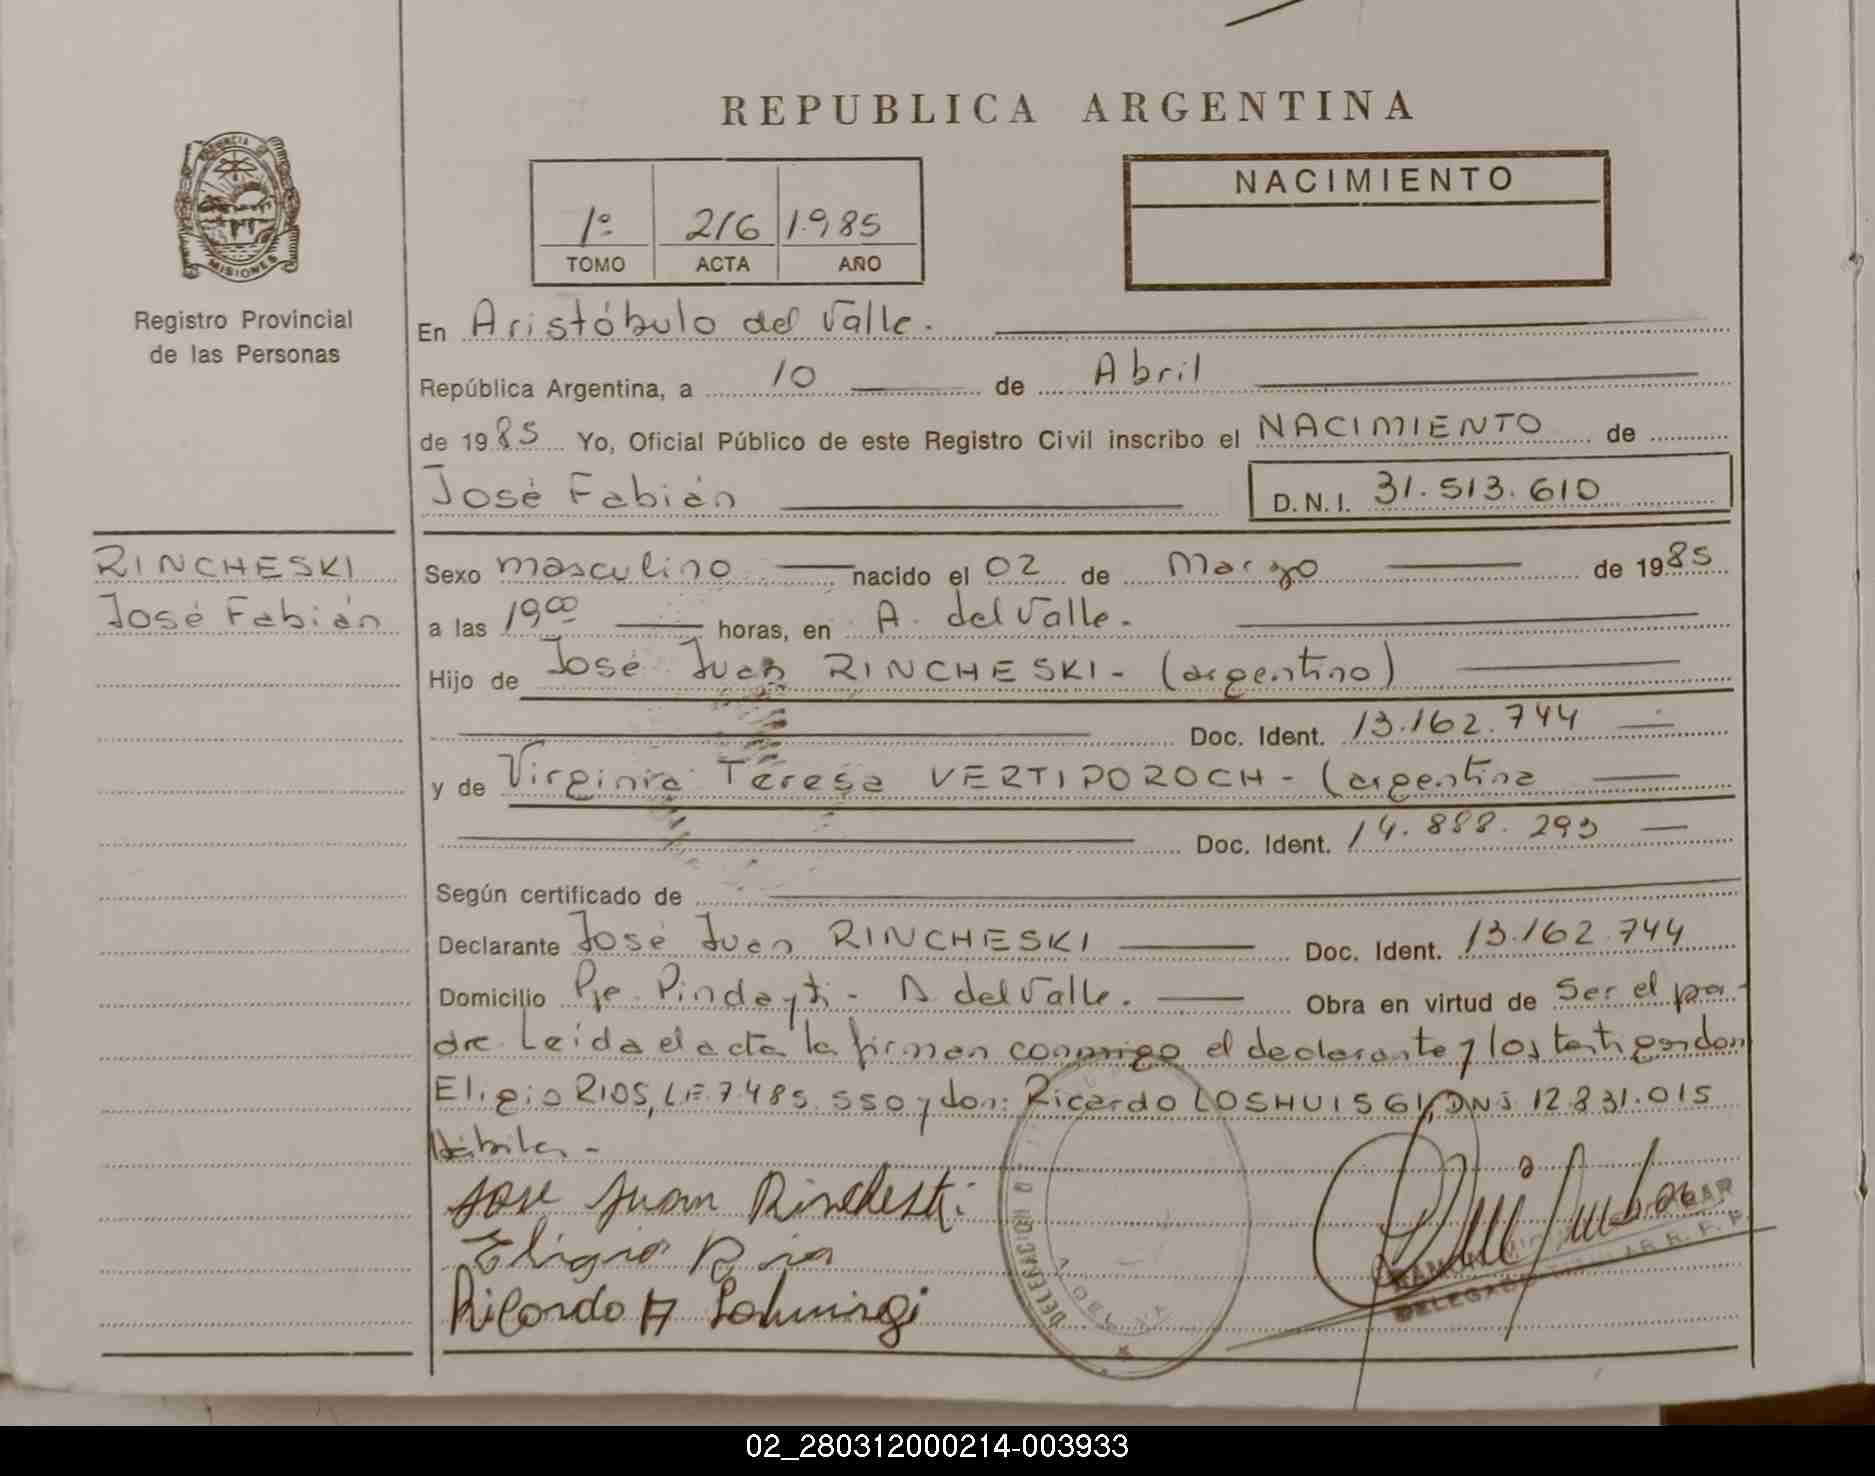 REPUBLICA ARGENTINA
PROVINCIA DE
MISIONES
Registro Provincial
de las Personas
1º 216 1.985
TOMO ACTA AÑO
NACIMIENTO
En Aristóbulo del Valle.
República Argentina, a 10 de Abril
de 1985 Yo, Oficial Público de este Registro Civil inscribo el NACIMIENTO de
José Fabián D.N.I. 31.513.610
RINCHESKI
José Fabián
Sexo masculino nacido el 02 de Marzo de 1985
a las 19 00 horas, en A. del Valle.
Hijo de José Juan RINCHESKI - (argentino)
Doc. Ident. 13.162.744
y de Virginia Teresa VERTIPOROCH - (argentina
Doc. Ident. 14.888.293
Según certificado de
Declarante José Juan RINCHESKI Doc. Ident. 13.162.744
Domicilio Pje. Pindayti - A. del Valle. Obra en virtud de Ser el pa-
dre. Leída el acta la firman conmigo el declarante y los testigos don
Eligio RIOS, LE. 7.485.550 y don: Ricardo LOSHUISGI, DNI 12.831.015
Hábiles -
Jose Juan Rincheski
Eligio Rios
Ricardo A
DELEGACION
RAMON
DELEGADO
02_280312000214-003933